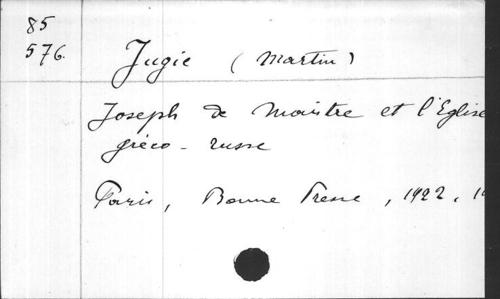 85
576.
Jugie (Martin)
Joseph de Maistre et l'Eglise
gréco-russe
Paris, Bonne Presse, 1922, 1